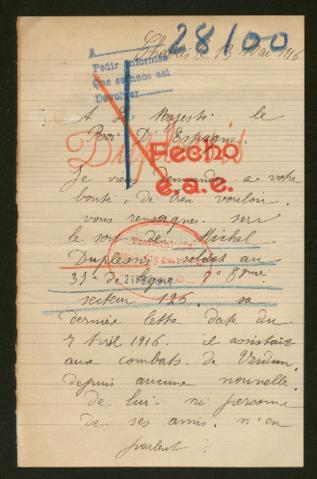 28/00
le 13 Mai 1916
A
Pedir informes
Que se haga así
Devolver
A Sa Majesté le
Roi D'Espagne.
Duplessis
Fecho
e.a.e.
Je viens à votre
bonté de bien vouloir
vous renseigner sur
le sort de Michel
Duplessis soldat au
33e de ligne 8eme
secteur 126. sa
dernière lettre date du
7 Avril 1916. il assistait
aux combats de Verdun.
depuis aucune nouvelle
de lui. ni personne
de ses amis. n'en
parlent.